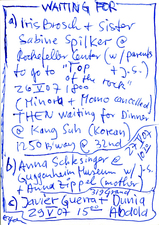 WAITING FOR
a) Iris Brosch + Sister
Sabine Spilker @
Rockefeller Center (w/ parents
to go to "TOP + J.S.)
29 V 07 of the rock"
1800
(Minorh + Momo cancelled)
THEN waiting for Dinner
@ Kang Suh (Korean)
1250 B'way @ 32nd
b) Anna Schlesinger @
Guggenheim Museum w/ J.S.
+ Anna Zippel (mother
c) Javier Guerra + Dunia
29 V 07 15 Abdola